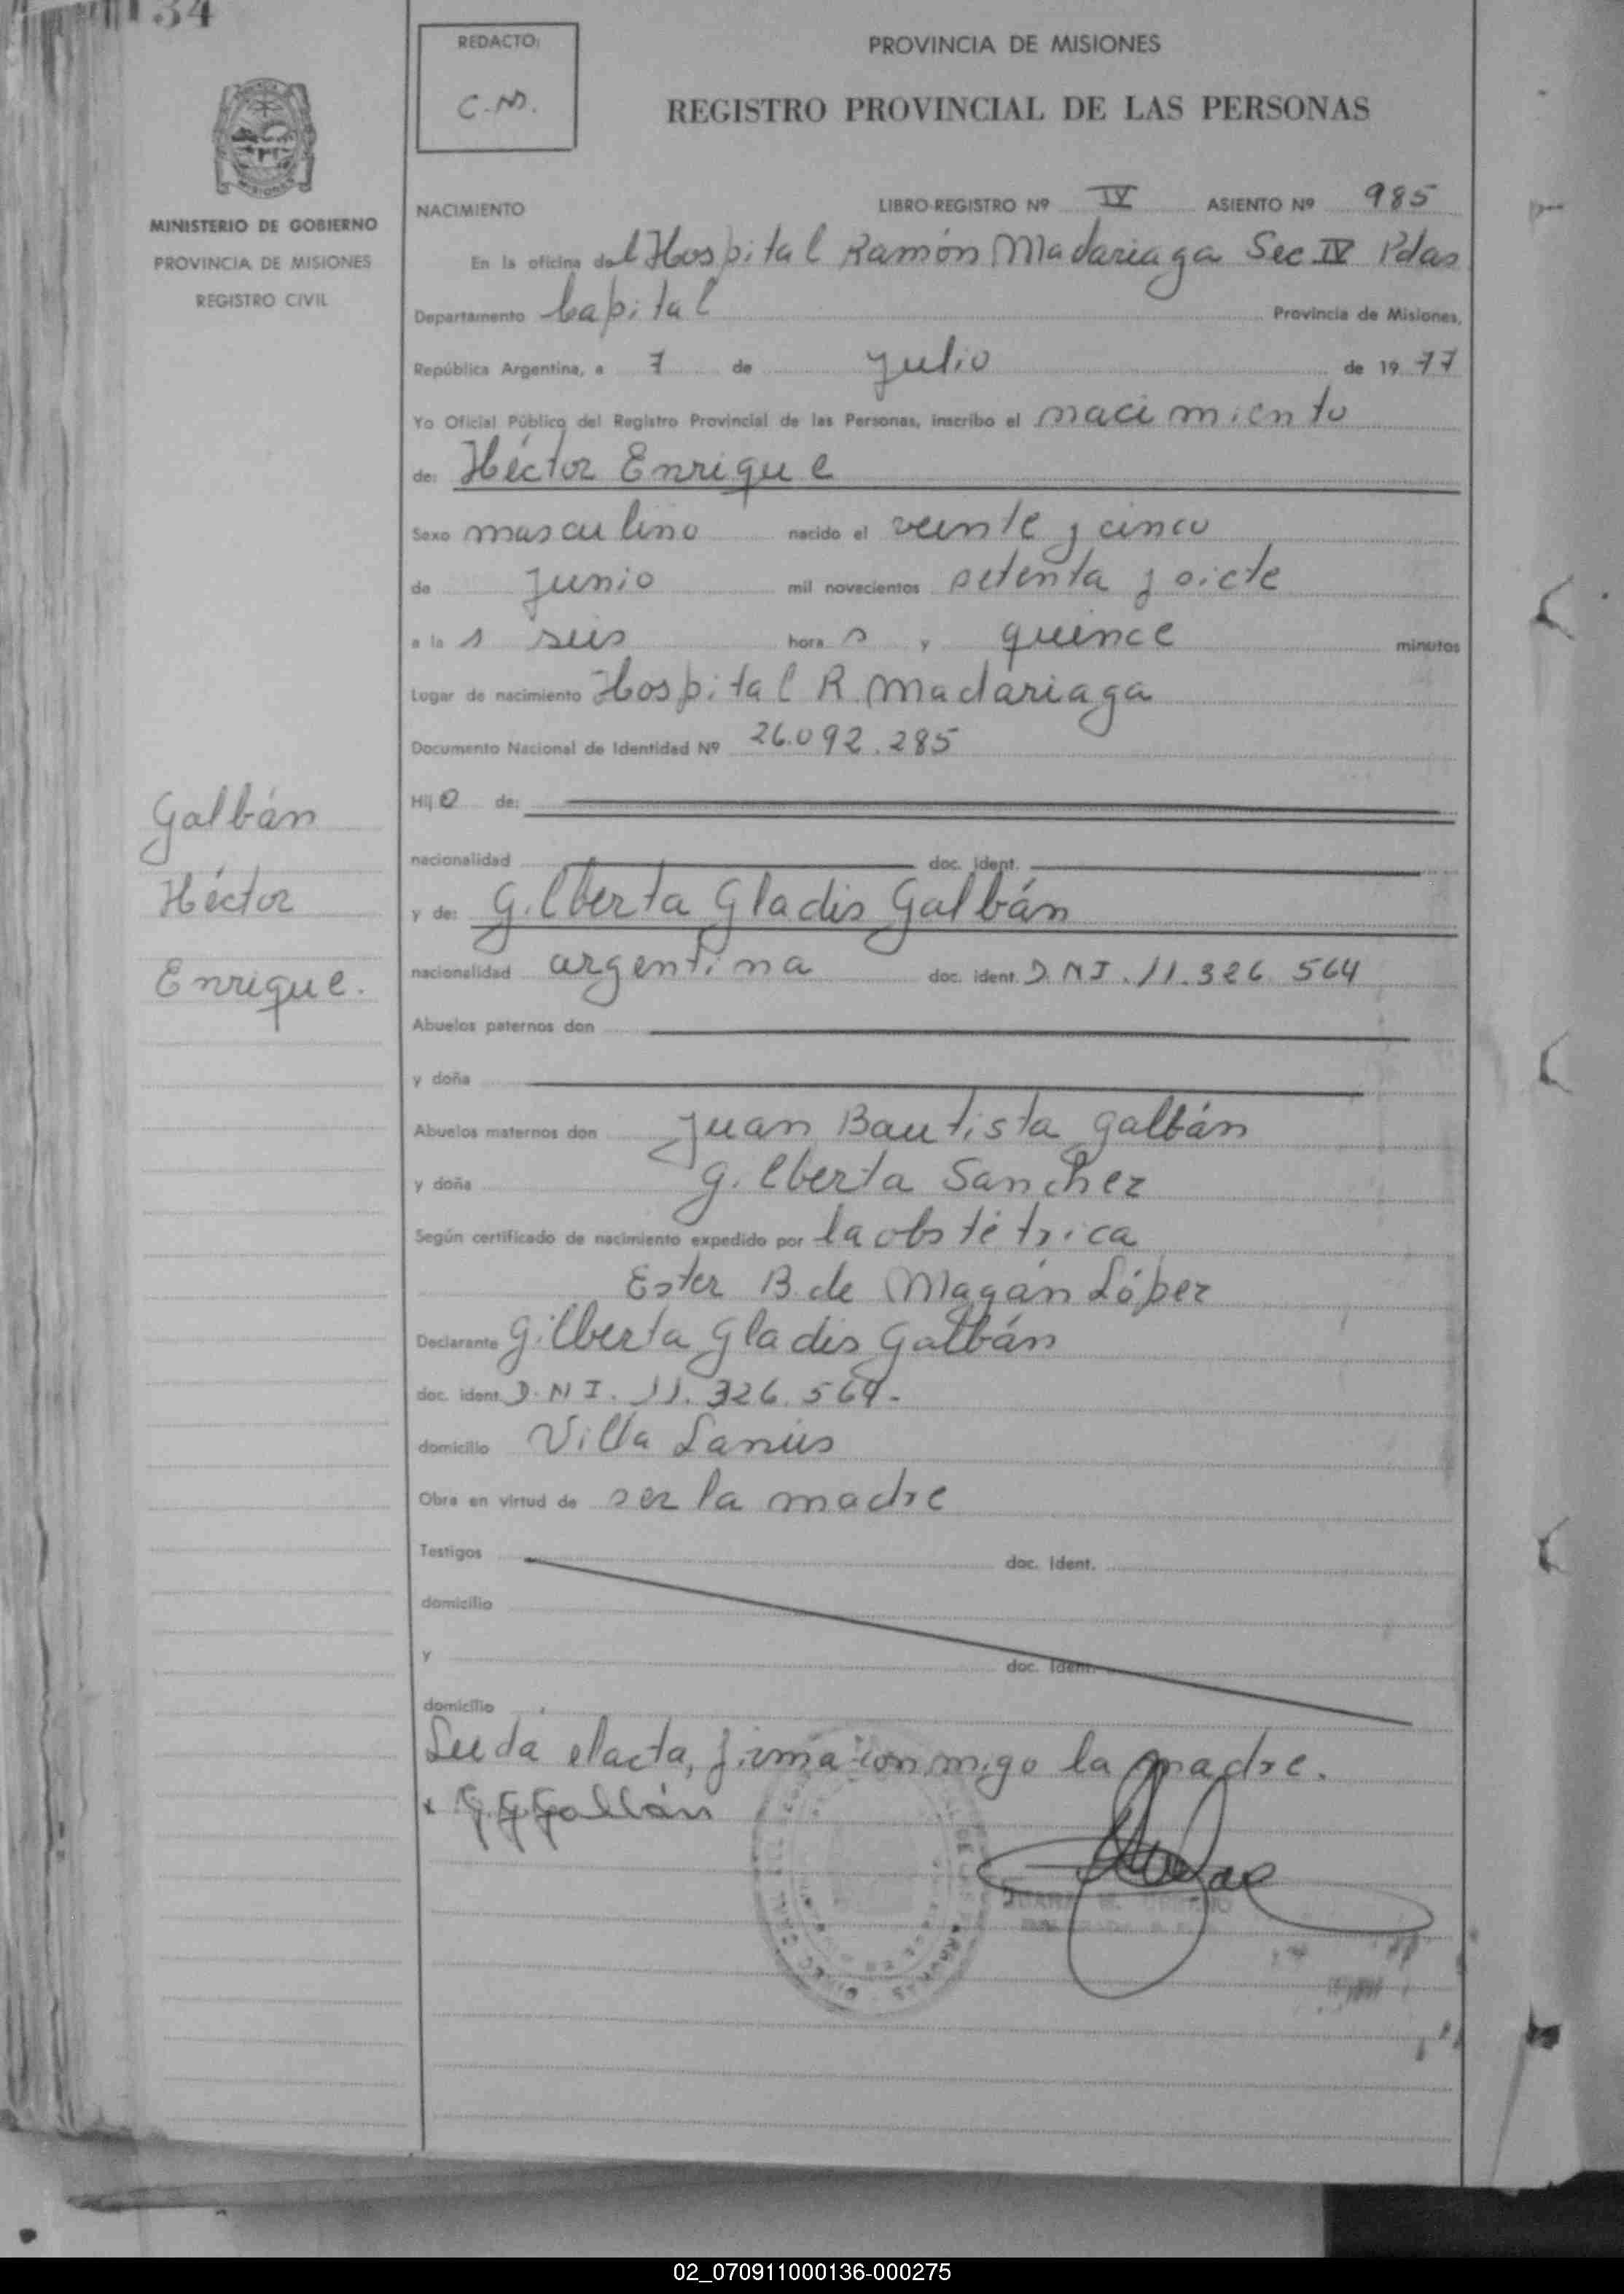 134
REDACTO:
C.M.
PROVINCIA DE MISIONES
REGISTRO PROVINCIAL DE LAS PERSONAS
MISIONES
MINISTERIO DE GOBIERNO
PROVINCIA DE MISIONES
REGISTRO CIVIL
NACIMIENTO LIBRO-REGISTRO Nº IV ASIENTO Nº 985
En la oficina del Hospital Ramón Madariaga Sec IV Pdas
Departamento Capital Provincia de Misiones,
República Argentina, a 7 de julio de 1977
Yo Oficial Público del Registro Provincial de las Personas, inscribo el nacimiento
de: Héctor Enrique
Sexo masculino nacido el veinte y cinco
de junio mil novecientos setenta y siete
a la s seis hora s y quince minutos
Lugar de nacimiento Hospital R. Madariaga
Documento Nacional de Identidad Nº 26.092.285
Hijo de:
nacionalidad doc. ident.
y de: Gilberta Gladis Galbán
nacionalidad argentina doc. ident. D.N.I. 11.326.564
Abuelos paternos don
y doña
Abuelos maternos don Juan Bautista Galbán
y doña Gilberta Sanchez
Según certificado de nacimiento expedido por la obstétrica
Ester B. de Magán López
Declarante Gilberta Gladis Galbán
doc. ident. D.N.I. 11.326.564.-
domicilio Villa Lanús
Obra en virtud de ser la madre
Testigos doc. ident.
domicilio
y doc. ident.
domicilio
Leída el acta, firma conmigo la madre.
x G.G.Galbán
Galbán
Héctor
Enrique.
02_070911000136-000275